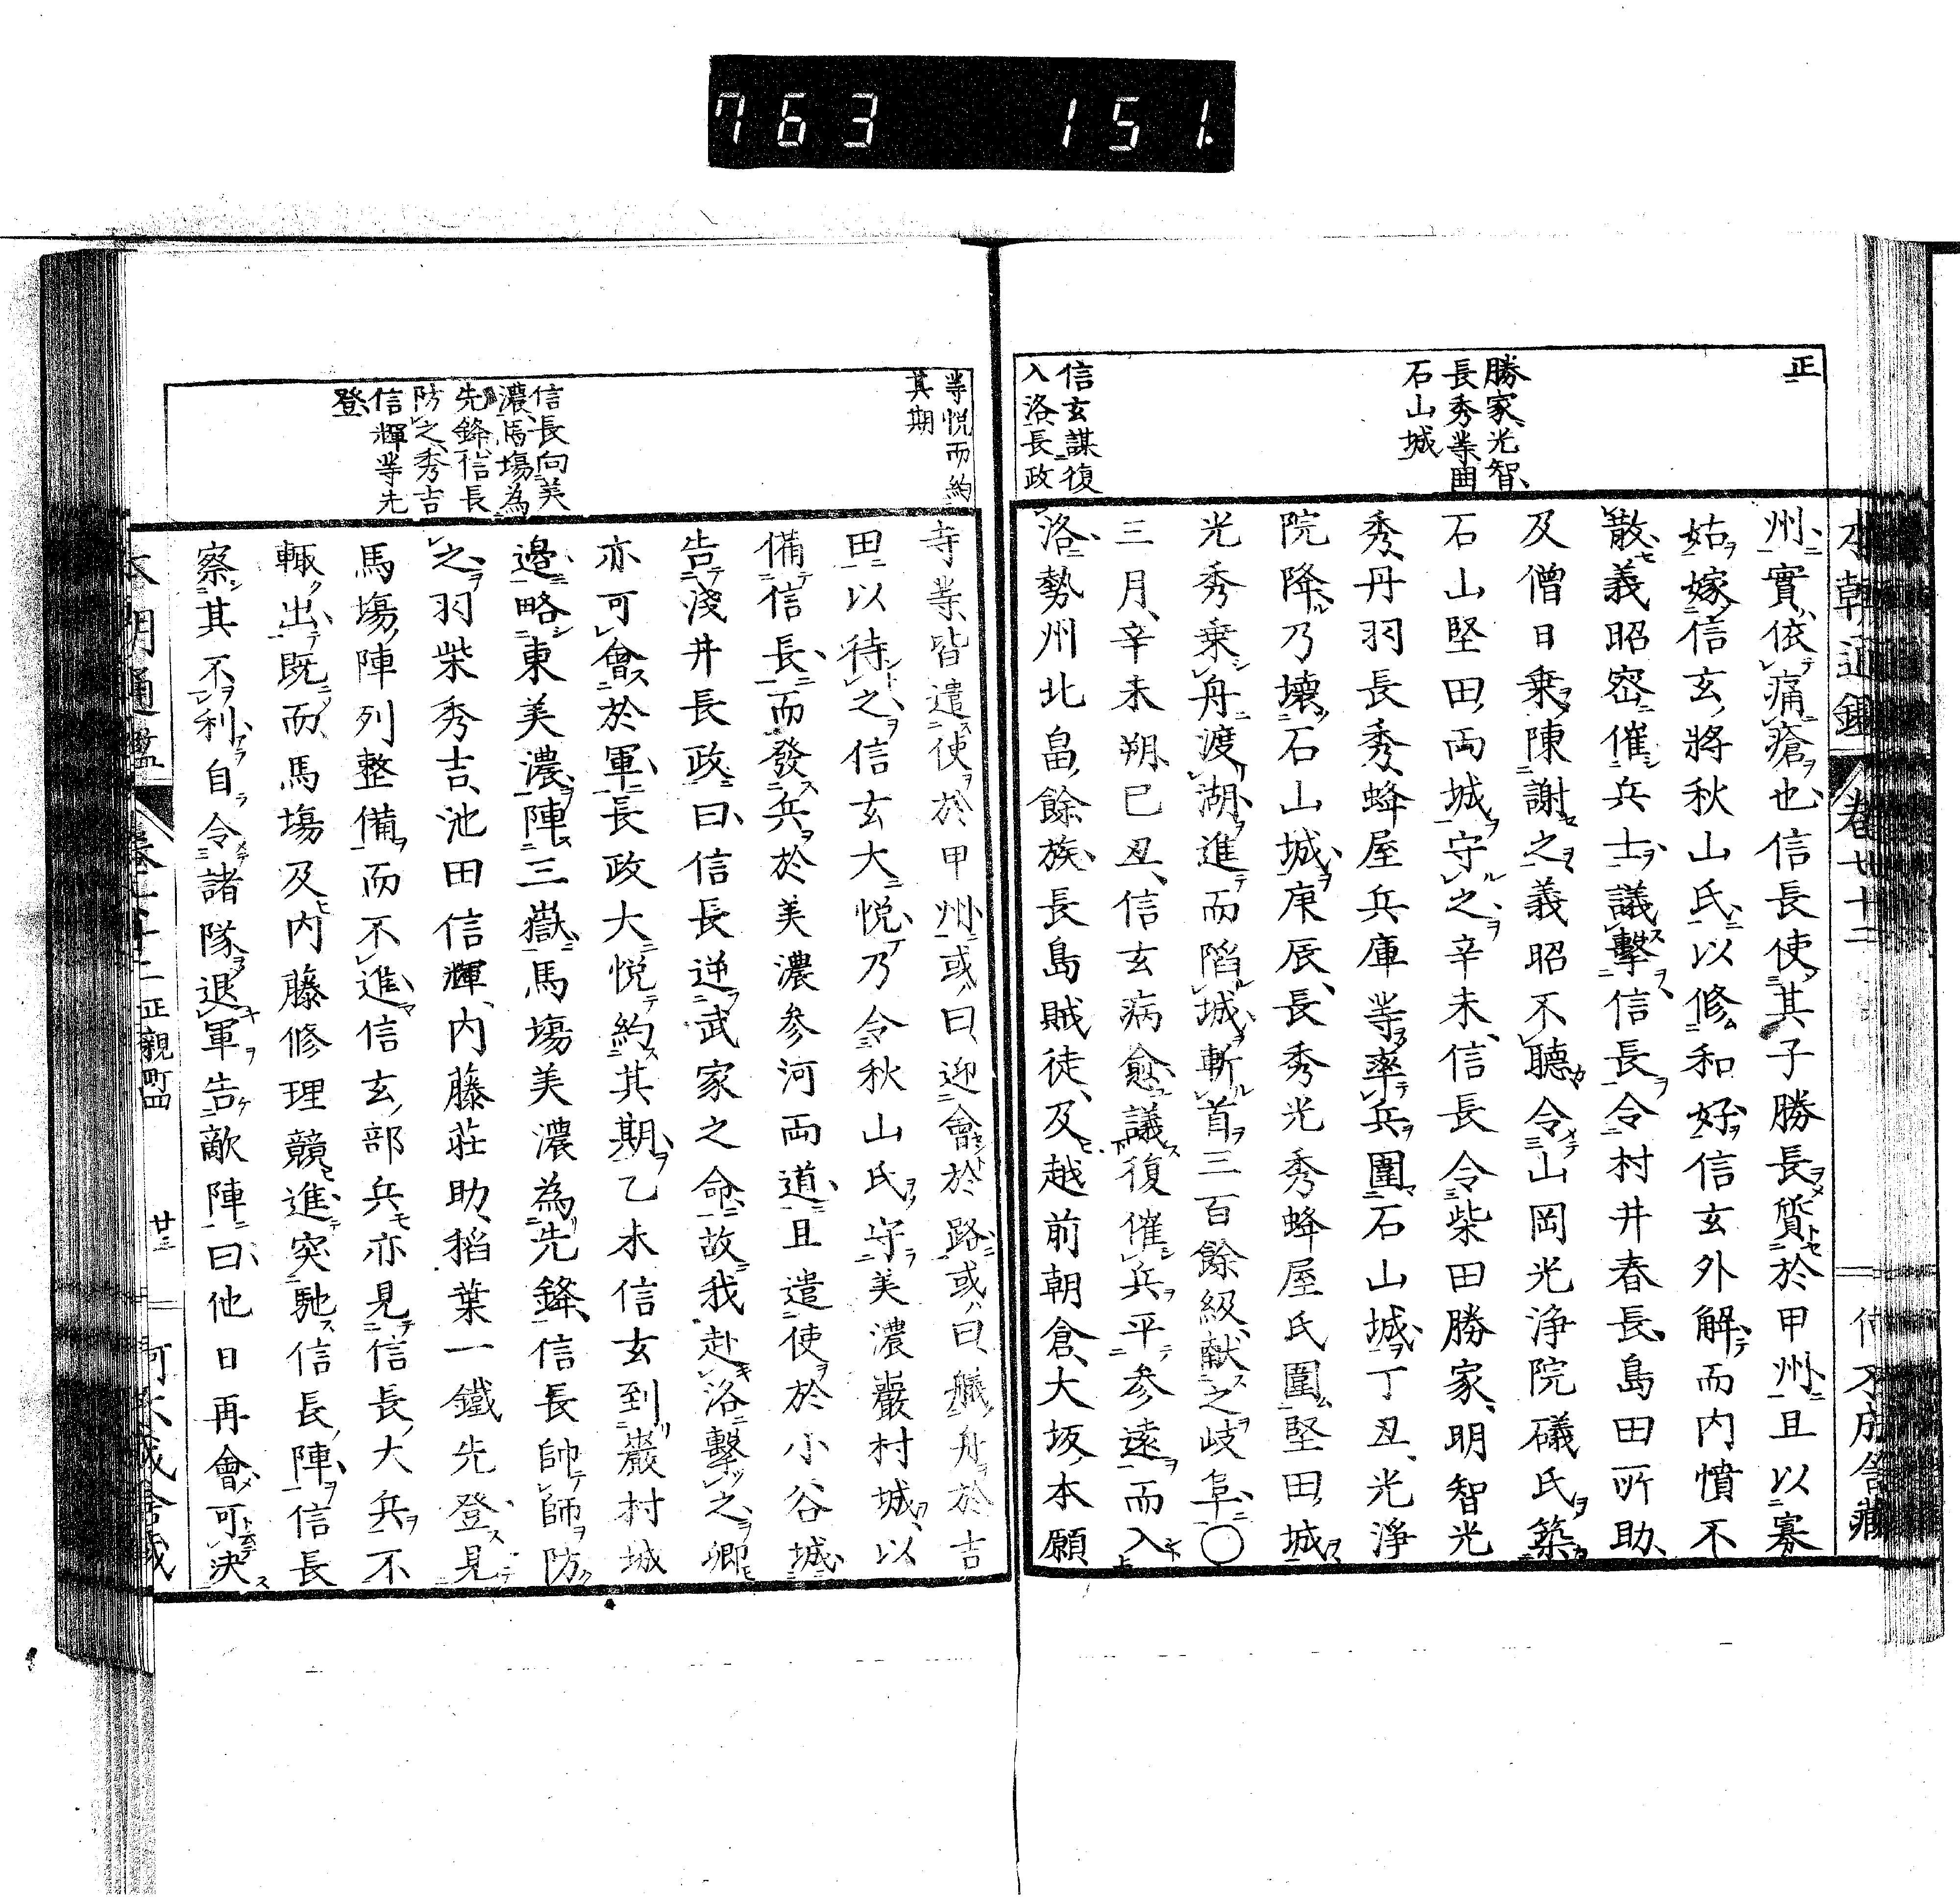 763 151.
正
勝家光智
長秀等囲
石山城
信玄謀復
入洛長政
州實依痛瘡也信長使其子勝長質於甲州且以寡
姑嫁信玄將秋山氏以修和好信玄外解而内憤不
散義昭密催兵士議擊信長令村井春長島田所助
及僧日乗陳謝之義昭不聽令山岡光浄院礒氏築
石山堅田両城守之辛未信長令柴田勝家明智光
秀丹羽長秀蜂屋兵庫等率兵圍石山城丁丑光浄
院降乃壊石山城庚辰長秀光秀蜂屋氏圍堅田城
光秀乗舟渡湖進而陷城斬首三百餘級献之岐阜〇
三月辛未朔己丑信玄病愈議復催兵平参遠而入
洛勢州北畠餘族長島賊徒及越前朝倉大坂本願
等悦而約
其期
信長向美
濃馬場為
先鋒信長
防之秀吉
信輝等先
登
寺等皆遣使於甲州或曰迎會於路或曰艤舟於吉
田以待之信玄大悦乃令秋山氏守美濃巖村城以
備信長而發兵於美濃参河両道且遣使於小谷城
告淺井長政曰信長逆武家之命故我赴洛擊之卿
亦可會於軍長政大悦約其期乙未信玄到巖村城
邉略東美濃陣三嶽馬場美濃為先鋒信長帥師防
之羽柴秀吉池田信輝内藤荘助稻葉一鐵先登見
馬場陣列整備而不進信玄部兵亦見信長大兵不
輙出既而馬場及内藤修理競進突馳信長陣信長
察其不利自令諸隊退軍告敵陣曰他日再會可決
本朝通鑑 正親町四 廿三